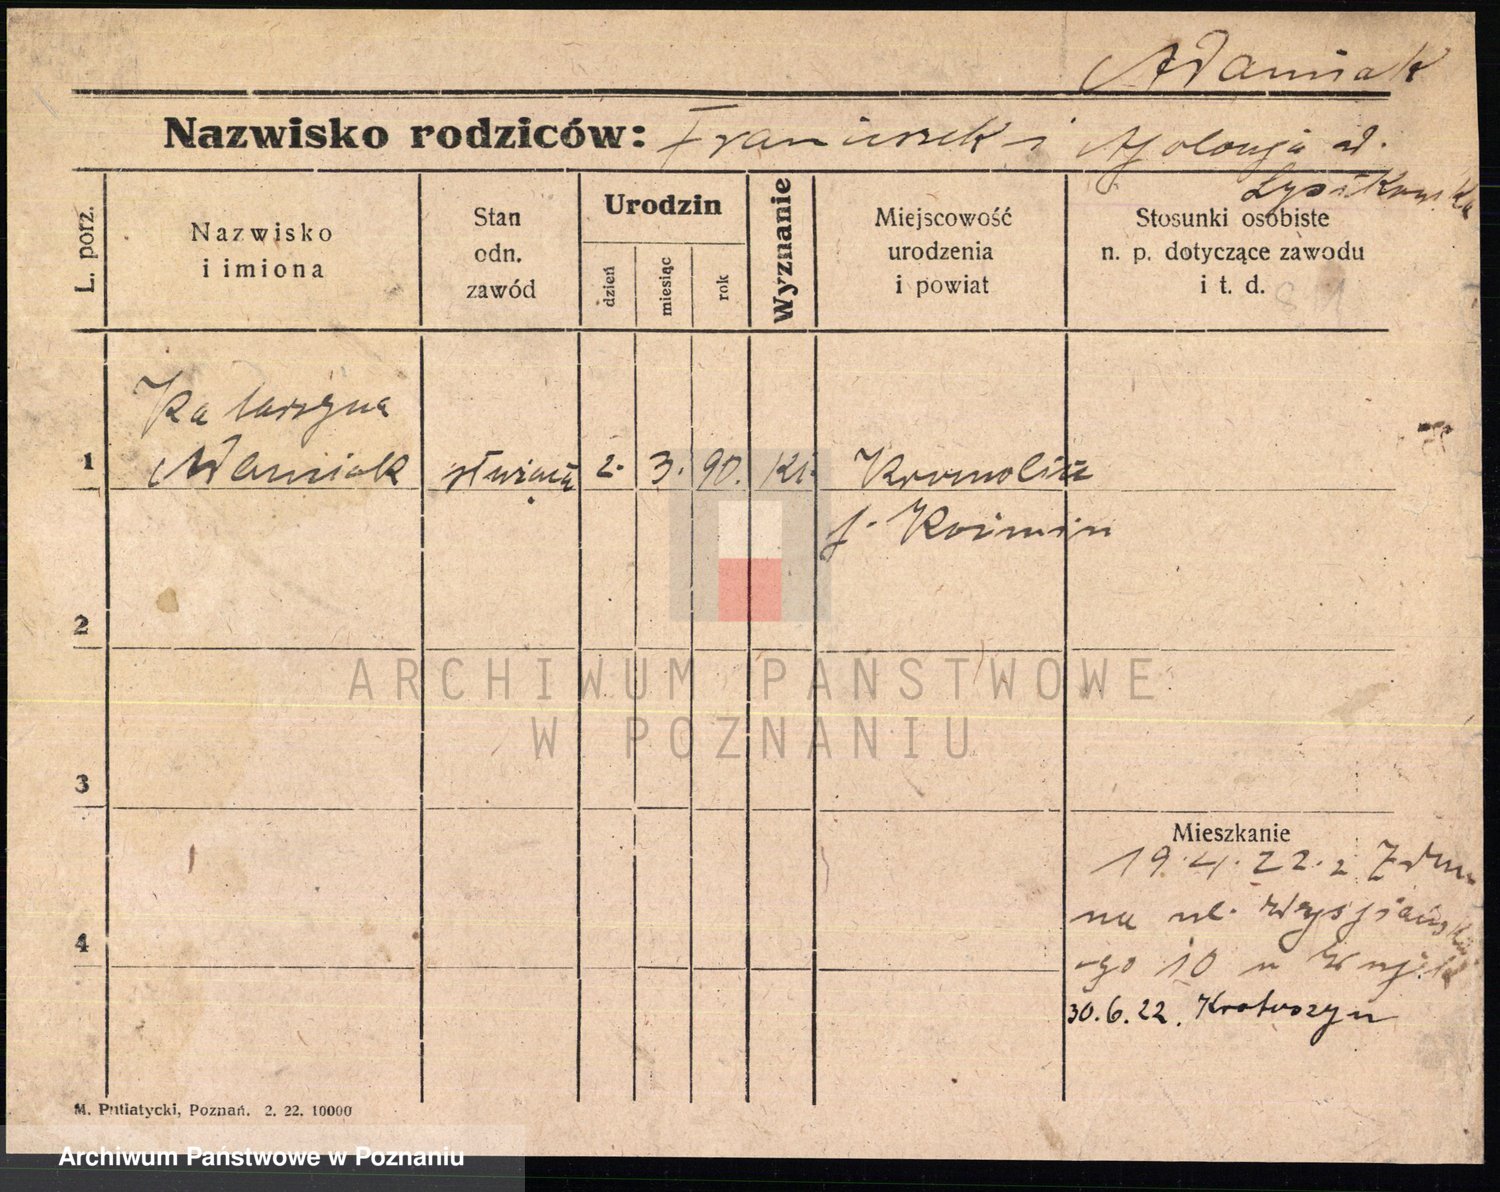 Adamiak
Nazwisko rodziców: Franciszek i Apolonja d.
L. porz.
Nazwisko
i imiona
Stan
odn.
zawód
Urodzin
dzień
miesiąc
rok
Wyznanie
Miejscowość
urodzenia
i powiat
Stosunki osobiste
n. p. dotyczące zawodu
i t. d.
Katarzyna
1 Adamiak służąca 2. 3. 90. kt. Kromolice
p. Koźmin
2
3
4
Mieszkanie
19.4.22. z Zdun
na ul. Wyspiańskie
-go 10 u
30.6.22. Krotoszyn
M. Putiatycki, Poznań. 2. 22. 10000
ARCHIWUM PAŃSTWOWE
W POZNANIU
Archiwum Państwowe w Poznaniu